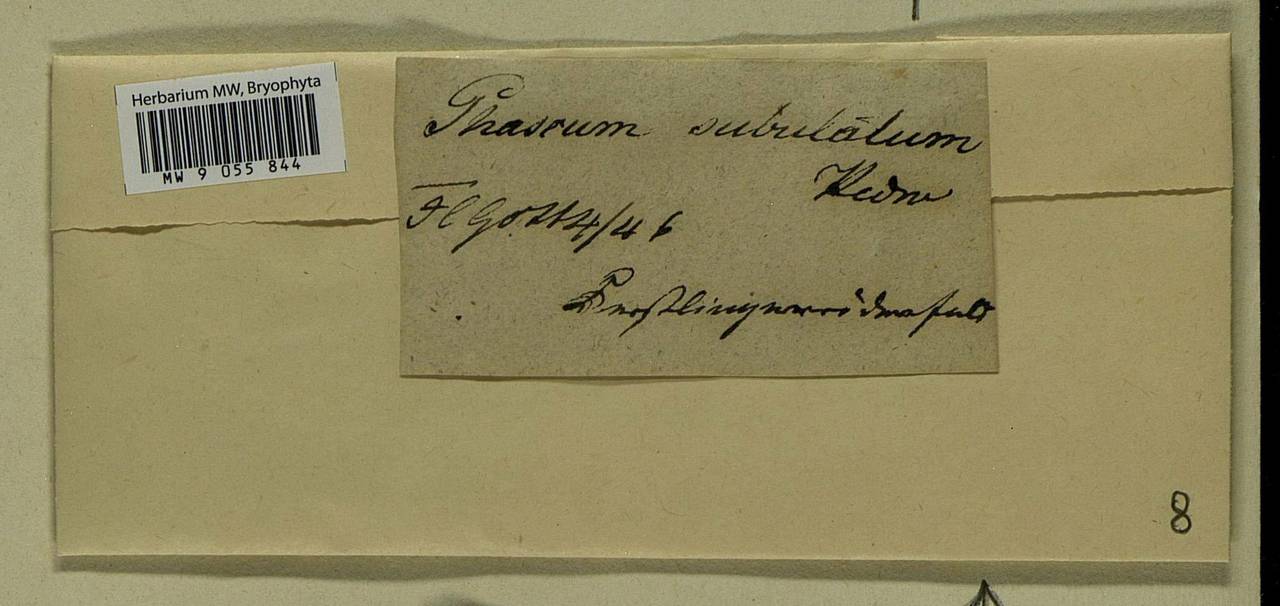 Herbarium MW, Bryophyta
MW 9 055 844
Phascum subulatum
Hedw
Fl Gott 4/46
8